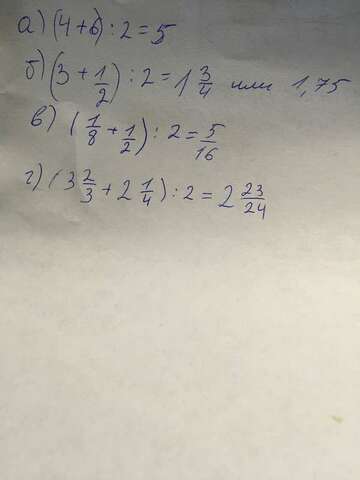 а) (4+6) : 2 = 5
б) (3 + 1/2) : 2 = 1 3/4 или 1,75
в) (1/8 + 1/2) : 2 = 5/16
г) (3 2/3 + 2 1/4) : 2 = 2 23/24